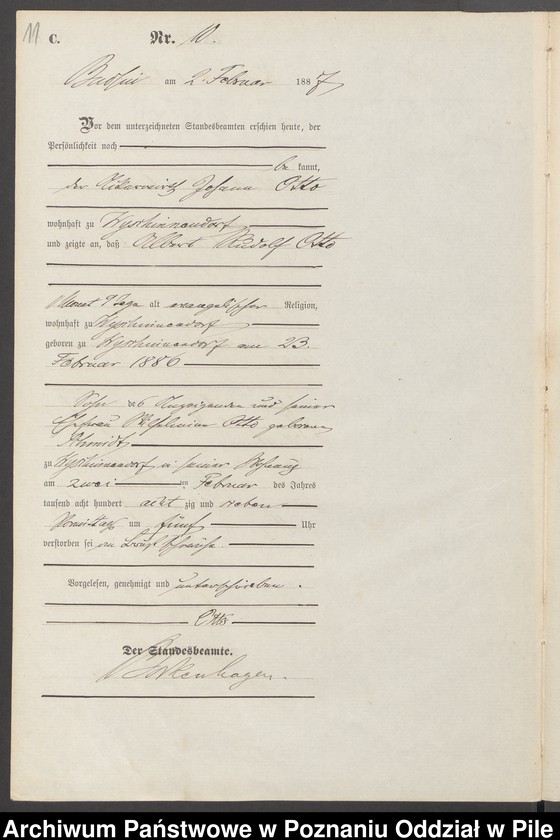 11 C. Nr. 10.
am 2. Februar 1887
Vor dem unterzeichneten Standesbeamten erschien heute, der
Persönlichkeit nach
be kannt,
der Johann Otto
wohnhaft zu
und zeigte an, daß Albert Rudolf Otto
Monat 9 Tage alt evangelischer Religion,
wohnhaft zu
geboren zu am 23.
Februar 1886
Sohn des Anzeigenden und seiner
Ehefrau Wilhelmine Otto geborenen
Schmidt
zu in seiner Wohnung
am zwei ten Februar des Jahres
tausend acht hundert acht zig und sieben
Vormittags um fünf Uhr
verstorben sei
Vorgelesen, genehmigt und unterschrieben.
Otto
Der Standesbeamte.
Archiwum Państwowe w Poznaniu Oddział w Pile